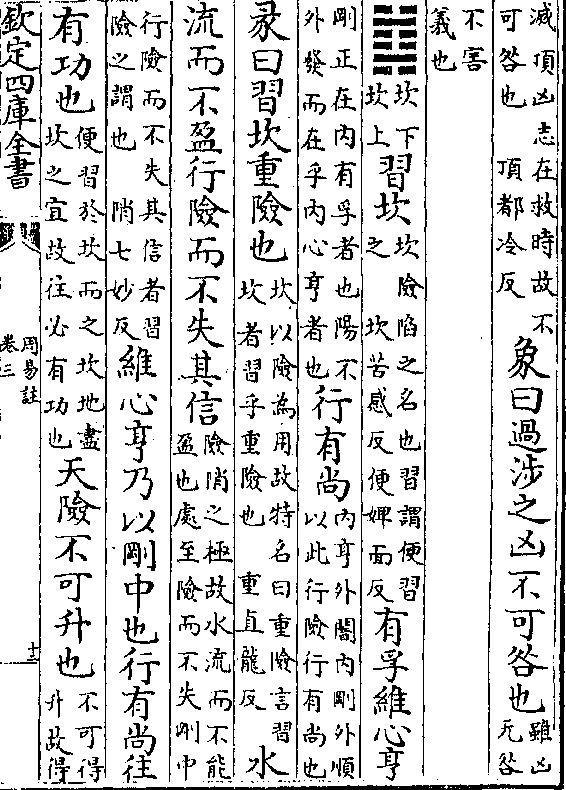 滅頂凶志在救時故不
可咎也 頂都冷反
象曰過涉之凶不可咎也
雖凶
无咎
不害
義也
坎下
坎上
習坎
坎險陷之名也習謂便習
之 坎苦感反便婢面反
有孚維心亨
剛正在內有孚者也陽不
外發而在乎內心亨者也
行有尚
內亨外闇內剛外順
以此行險行有尚也
彖曰習坎重險也
坎以險為用故特名曰重險言習
坎者習乎重險也 重直龍反
水
流而不盈行險而不失其信
險陗之極故水流而不能
盈也處至險而不失剛中
行險而不失其信者習
險之謂也 陗七妙反
維心亨乃以剛中也行有尚往
有功也
便習於坎而之坎地盡
坎之宜故往必有功也
天險不可升也
不可得
升故得
欽定四庫全書
周易註
卷三
十三